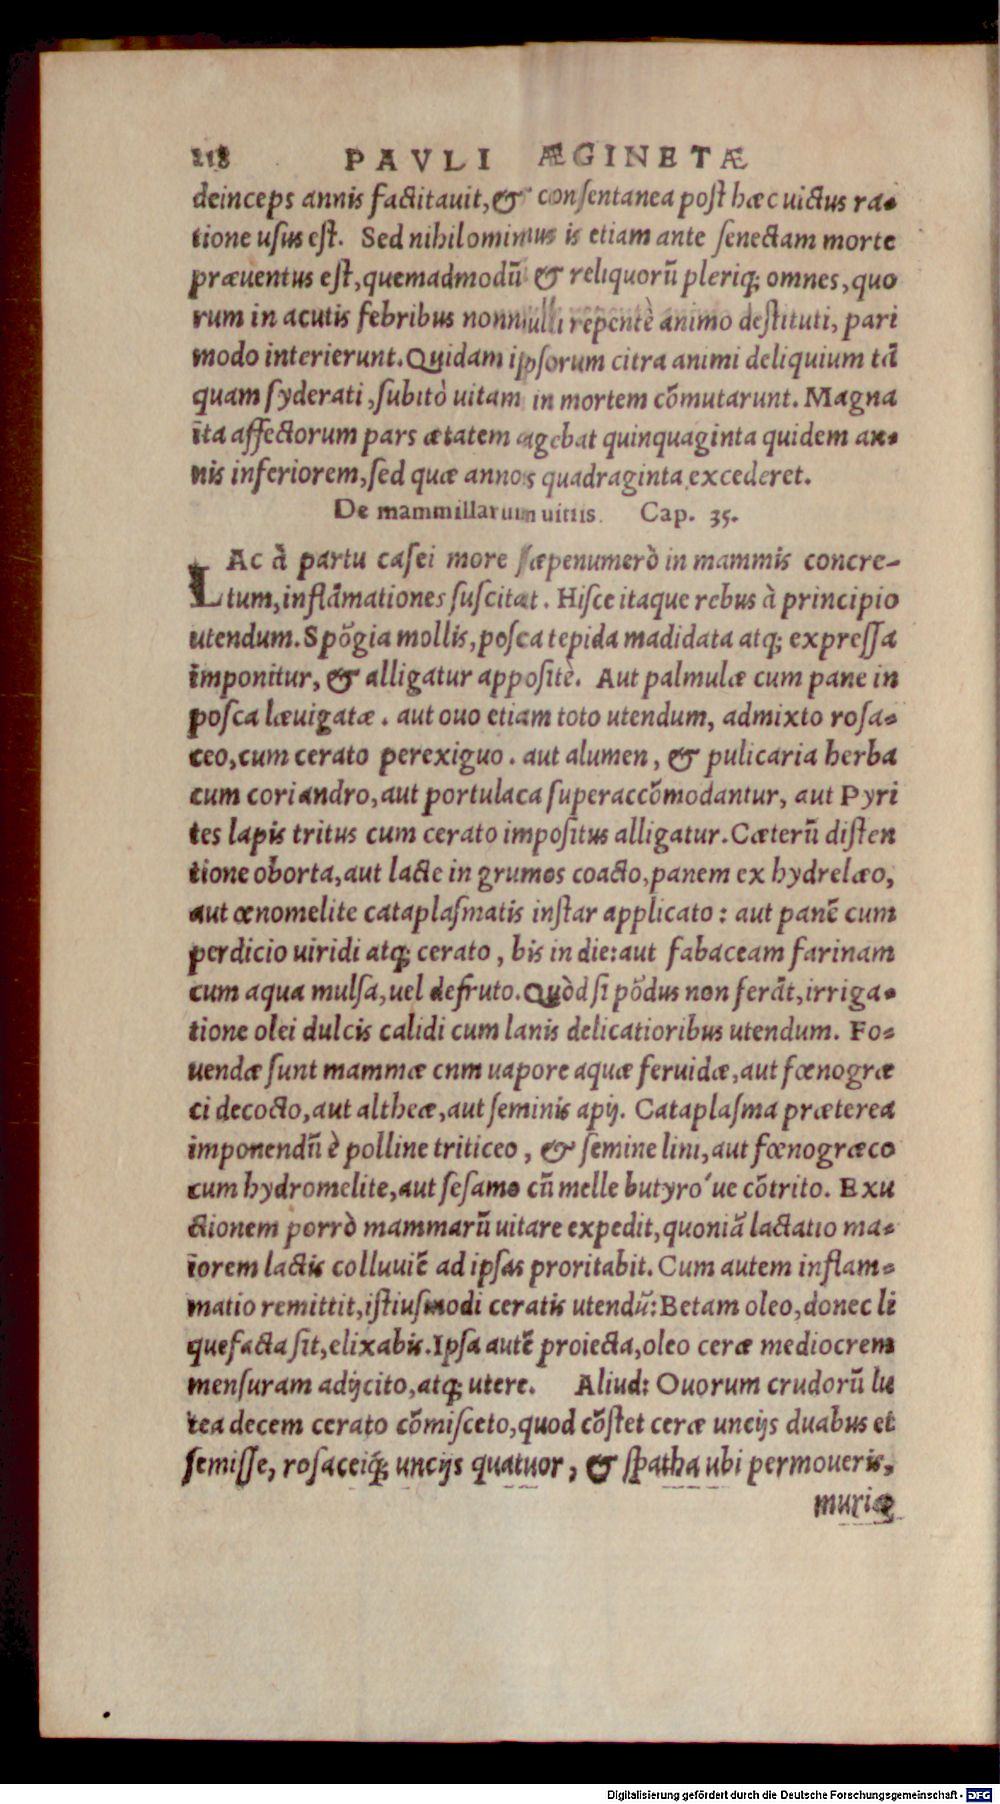 218 PAVLI ÆGINETÆ
deinceps annis factitauit, & consentanea post hæc uictus ra-
tione usus est. Sed nihilominus is etiam ante senectam morte
præuentus est, quemadmodū & reliquorū pleriq; omnes, quo
rum in acutis febribus nonnulli repentè animo destituti, pari
modo interierunt. Quidam ipsorum citra animi deliquium tā
quam syderati, subitò uitam in mortem cōmutarunt. Magna
ita affectorum pars ætatem agebat quinquaginta quidem an-
nis inferiorem, sed quæ annos quadraginta excederet.
De mammillarum uitiis. Cap. 35.
LAc à partu casei more sæpenumerò in mammis concre-
tum, inflāmationes suscitat. Hisce itaque rebus à principio
utendum. Spōgia mollis, posca tepida madidata atq; expressa
imponitur, & alligatur appositè. Aut palmulæ cum pane in
posca læuigatæ. aut ouo etiam toto utendum, admixto rosa-
ceo, cum cerato perexiguo. aut alumen, & pulicaria herba
cum coriandro, aut portulaca superaccōmodantur, aut Pyri
tes lapis tritus cum cerato impositus alligatur. Cæterū disten
tione oborta, aut lacte in grumos coacto, panem ex hydrelæo,
aut œnomelite cataplasmatis instar applicato: aut panē cum
perdicio uiridi atq; cerato, bis in die: aut fabaceam farinam
cum aqua mulsa, uel defruto. Quòd si pōdus non ferāt, irriga-
tione olei dulcis calidi cum lanis delicatioribus utendum. Fo-
uendæ sunt mammæ cnm uapore aquæ feruidæ, aut fœnogræ
ci decocto, aut altheæ, aut seminis apij. Cataplasma præterea
imponendū è polline triticeo, & semine lini, aut fœnogræco
cum hydromelite, aut sesamo cū melle butyro'ue cōtrito. Exu
ctionem porrò mammarū uitare expedit, quoniā lactatio ma-
iorem lactis colluuiē ad ipsas proritabit. Cum autem inflam-
matio remittit, istiusmodi ceratis utendū: Betam oleo, donec li
quefacta sit, elixabis. Ipsa autē proiecta, oleo ceræ mediocrem
mensuram adijcito, atq; utere. Aliud: Ouorum crudorū lu
tea decem cerato cōmisceto, quod cōstet ceræ uncijs duabus et
semisse, rosaceiq́; uncijs quatuor, & spatha ubi permoueris,
muriæ
Digitalisierung gefördert durch die Deutsche Forschungsgemeinschaft - DFG